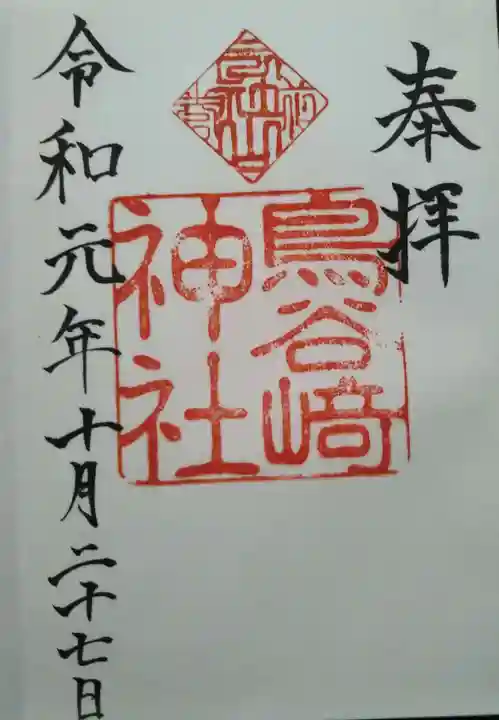 奉拝
鳥谷﨑
神社
令和元年十月二十七日